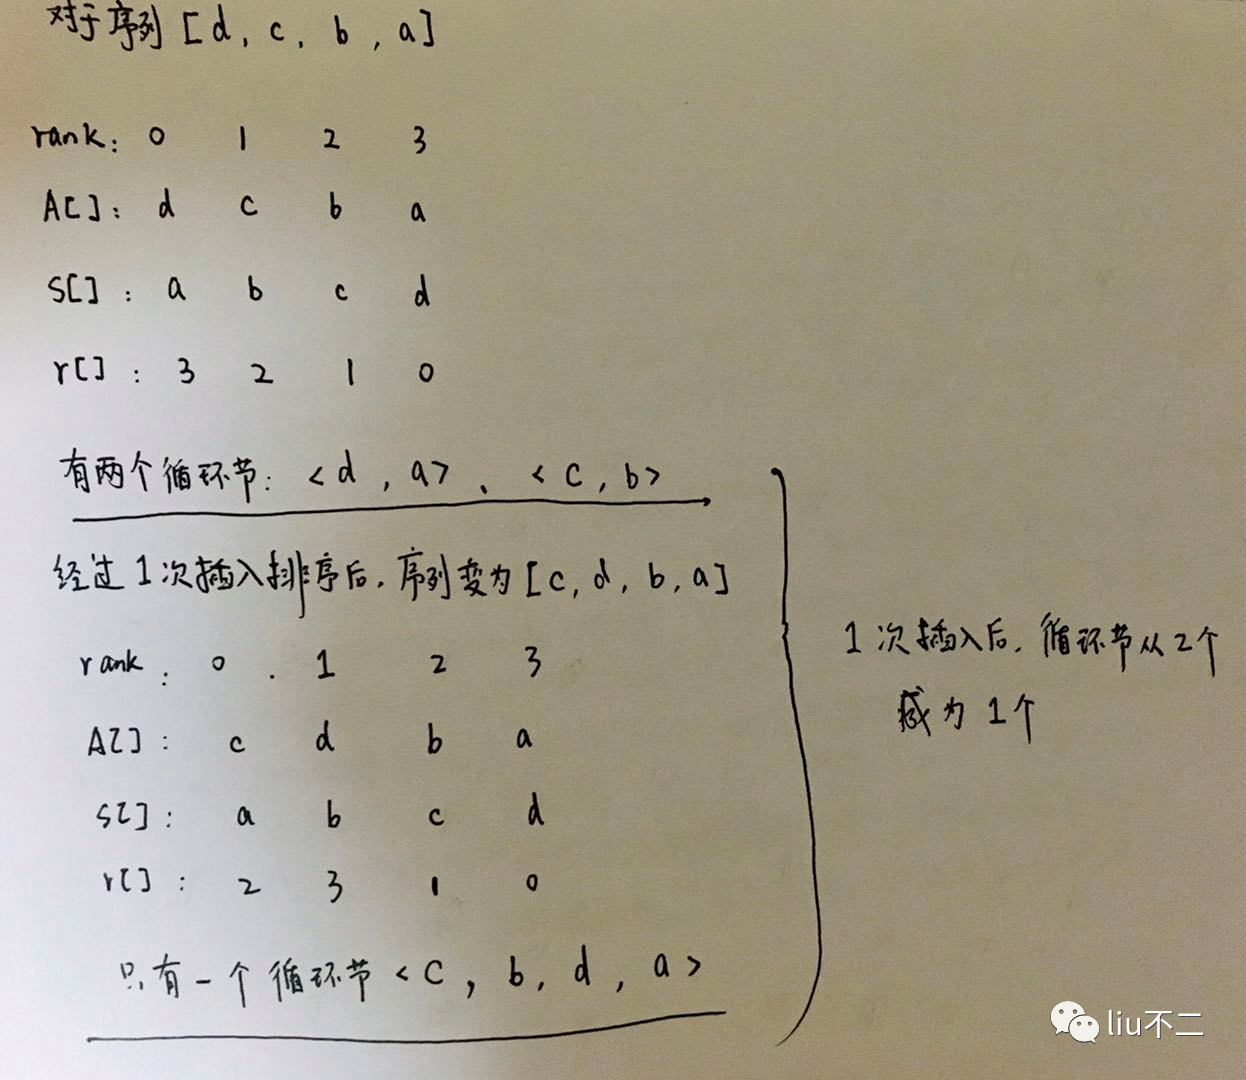 对于序列 [d, c, b, a]
rank: 0 1 2 3
A[]: d c b a
S[]: a b c d
r[]: 3 2 1 0
有两个循环节: <d, a>、<c, b>
经过1次插入排序后, 序列变为 [c, d, b, a]
rank: 0 1 2 3
A[]: c d b a
S[]: a b c d
r[]: 2 3 1 0
只有一个循环节 <c, b, d, a>
1次插入后, 循环节从2个
减为1个
liu不二